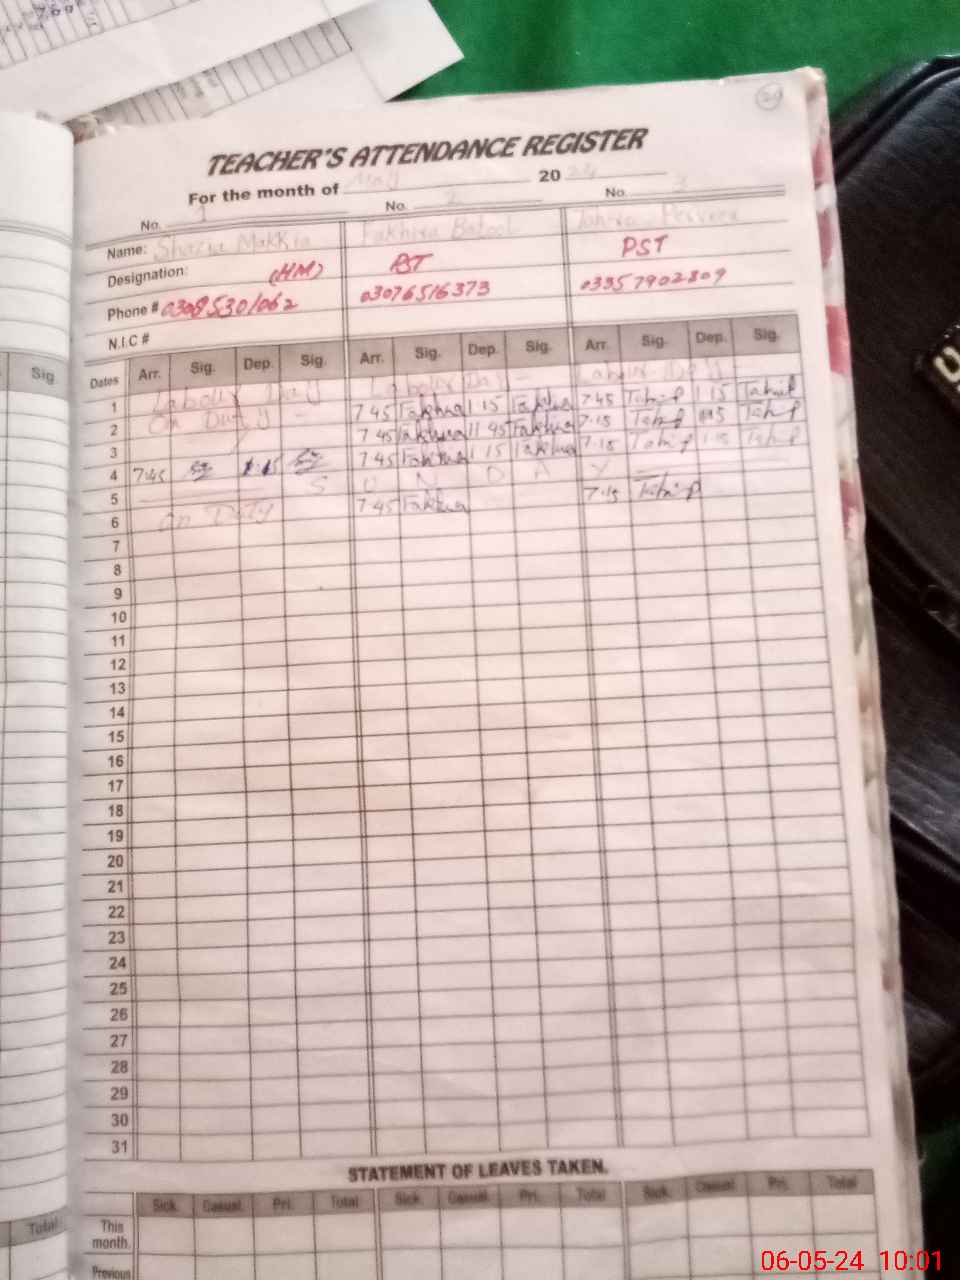 TEACHER'S ATTENDANCE REGISTER
For the month of May 2024
No. 1 No. 2 No. 3
Name: Shazia Makkia Fakhira Batool Tahira Perveen
Designation: (HM) PST PST
Phone # 03085301062 03076516373 03357902809
N.I.C #
Dates Arr. Sig. Dep. Sig. Arr. Sig. Dep. Sig. Arr. Sig. Dep. Sig.
1 Labour Day Labour Day Labour Day
2 On Duty 7 45 Fakhira 1 15 Fakhira 7 45 1 15
3 7 45 Fakhira 11 45 Fakhira 7.15
4 7:45 1:15 7 45 Fakhira 1 15 Fakhira 7.15 1.15
5 S U N D A Y
6 On Duty 7 45 Fakhira 7.15
7
8
9
10
11
12
13
14
15
16
17
18
19
20
21
22
23
24
25
26
27
28
29
30
31
STATEMENT OF LEAVES TAKEN.
Sick Casual Pri. Total Sick. Casual Pri. Total Sick. Casual Pri. Total
This month.
Previous
Sig.
Total
06-05-24 10:01